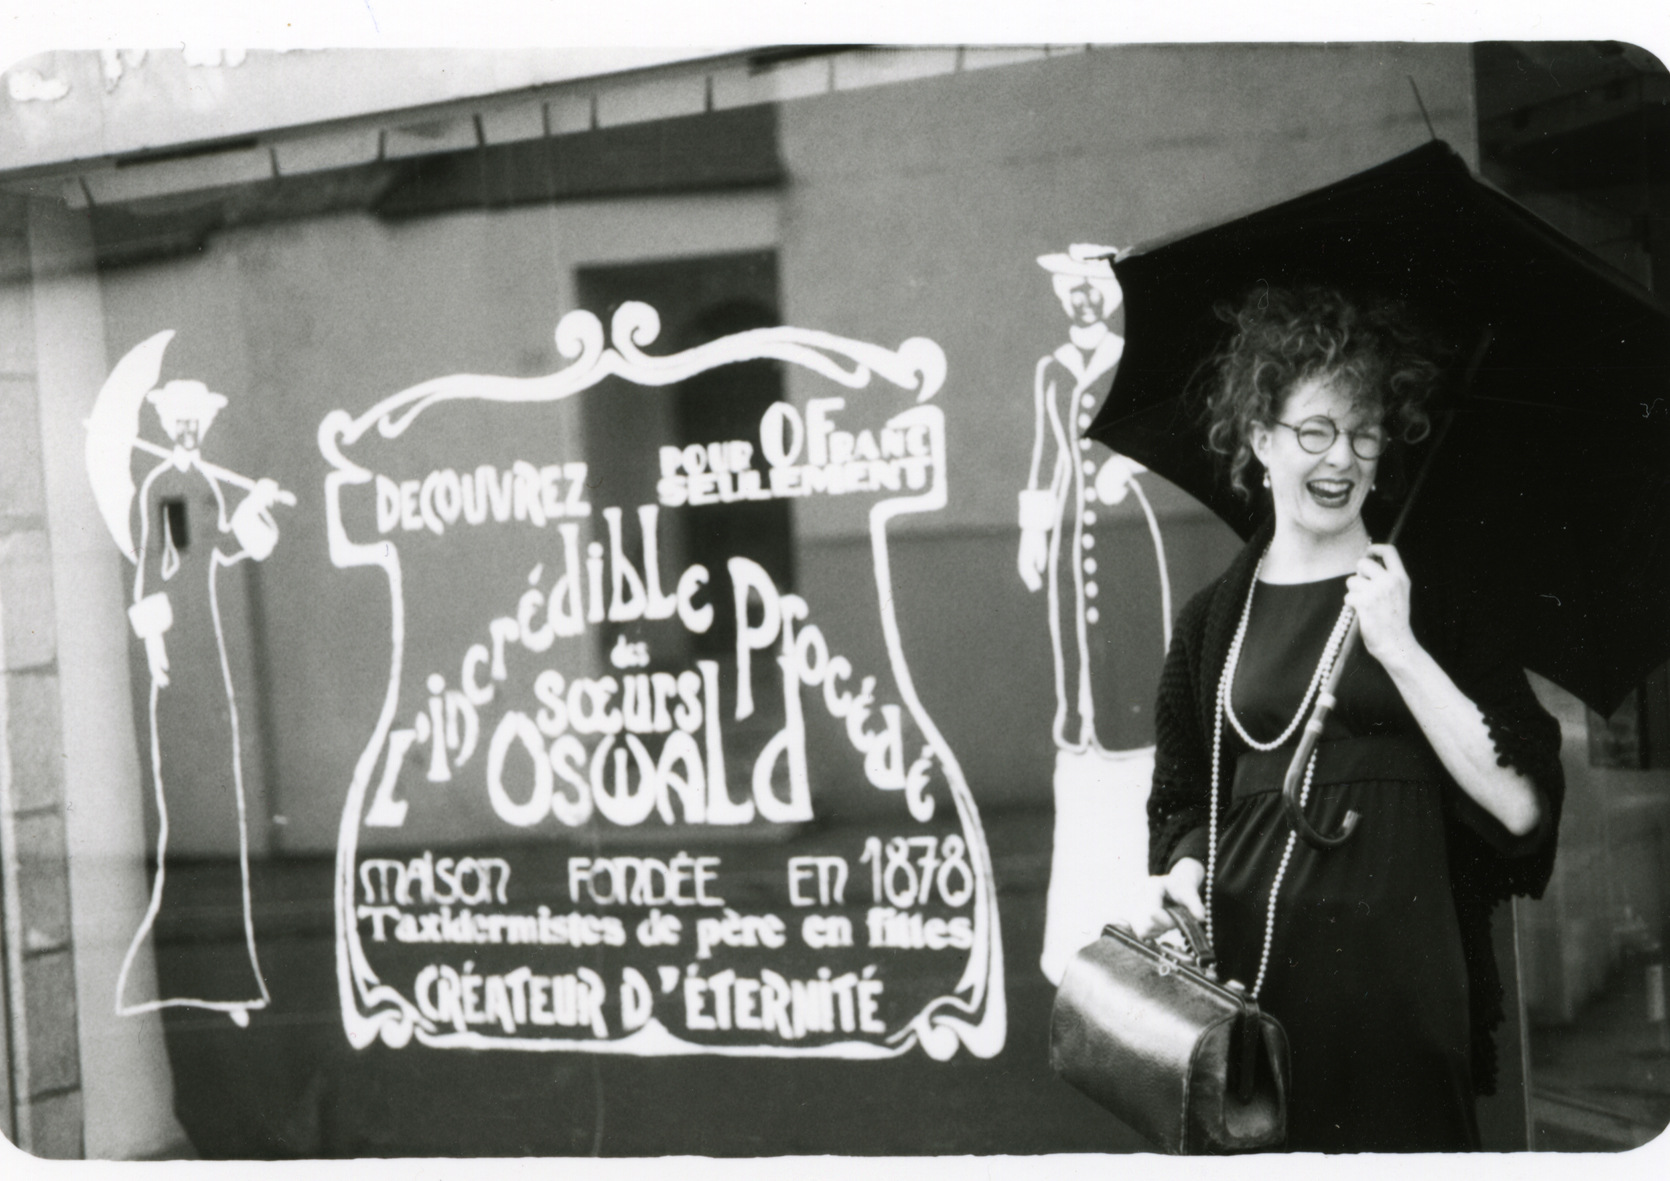 DECOUVREZ POUR 0 FRANC SEULEMENT
L'incrédible Procédé
des
sœurs
Oswald
MAISON FONDÉE EN 1878
Taxidermistes de père en filles
CRÉATEUR D'ÉTERNITÉ